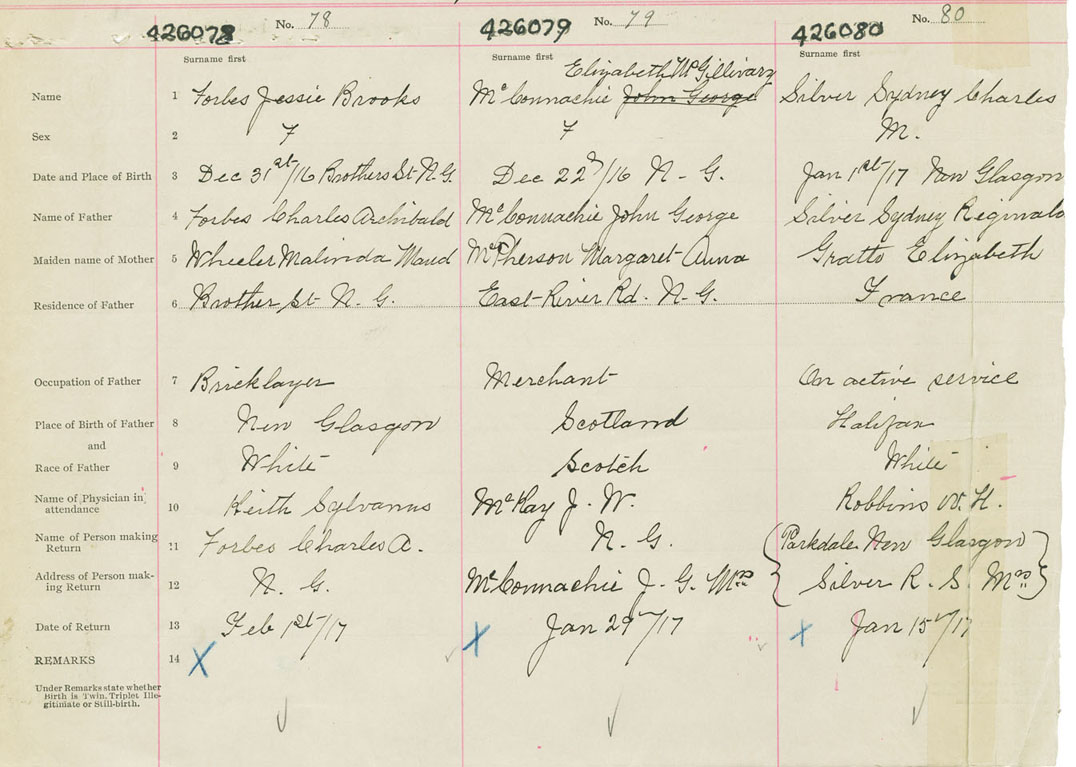 No. 78 No. 79 No. 80
426078 426079 426080
Surname first Surname first Surname first
Elizabeth McGillivary
Name 1 Forbes Jessie Brooks McConnachie John George Silver Sydney Charles
Sex 2 F F M.
Date and Place of Birth 3 Dec 31st/16 Brothers St N.G. Dec 22nd/16 N-G. Jan 1st/17 New Glasgow
Name of Father 4 Forbes Charles Archibald McConnachie John George Silver Sydney Reginald
Maiden name of Mother 5 Wheeler Malinda Maud McPherson Margaret Anna Gratto Elizabeth
Residence of Father 6 Brother St N. G. East River Rd. N-G. France
Occupation of Father 7 Bricklayer Merchant On active service
Place of Birth of Father 8 New Glasgow Scotland Halifax
and
Race of Father 9 White Scotch White
Name of Physician in
attendance 10 Keith Sylvanus McKay J. W. Robbins W. H.
Name of Person making
Return 11 Forbes Charles A. N. G. Parkdale New Glasgow
Address of Person mak-
ing Return 12 N. G. McConnachie J. G. Mrs Silver R. S. Mrs
Date of Return 13 Feb 1st/17 Jan 29/17 Jan 15/17
REMARKS 14 X X X
Under Remarks state whether
Birth is Twin, Triplet Ille-
gitimate or Still-birth.